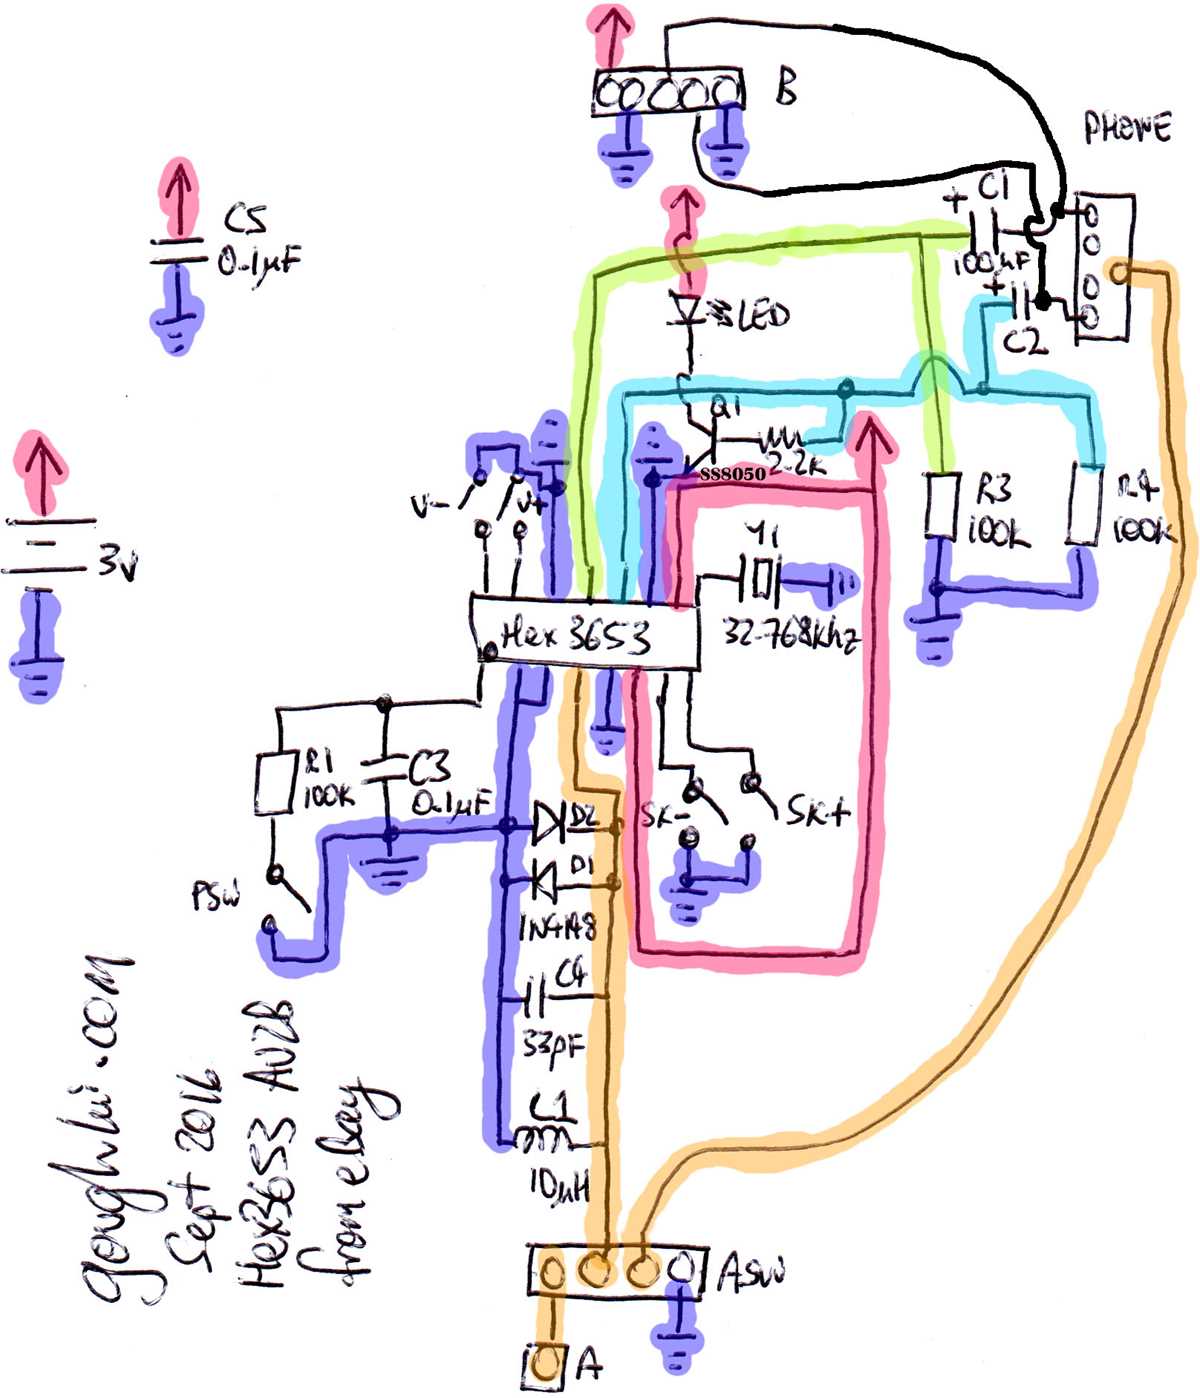 B
PHONE
C1
+
100µF
C5
0.1µF
+
C2
LED
Q1
2.2K
SS8050
V-
V+
R3
100K
R4
100K
3V
Y1
32.768Khz
Hex 3653
R1
100K
C3
0.1µF
D2
SK-
SK+
D1
1N4148
PSW
C4
33pF
L1
10µH
gough lui.com
Sept 2016
Hex3653 AV2B
from ebay
ASW
A